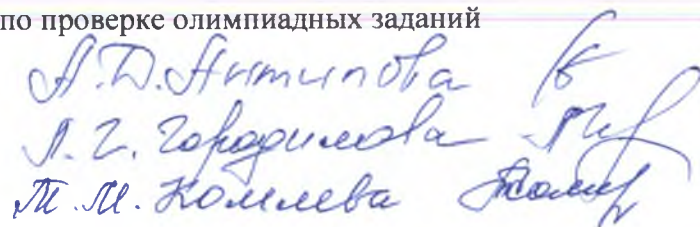 по проверке олимпиадных заданий
А.Д. Антипова
Л.Г. Городилова
М.М. Комлева